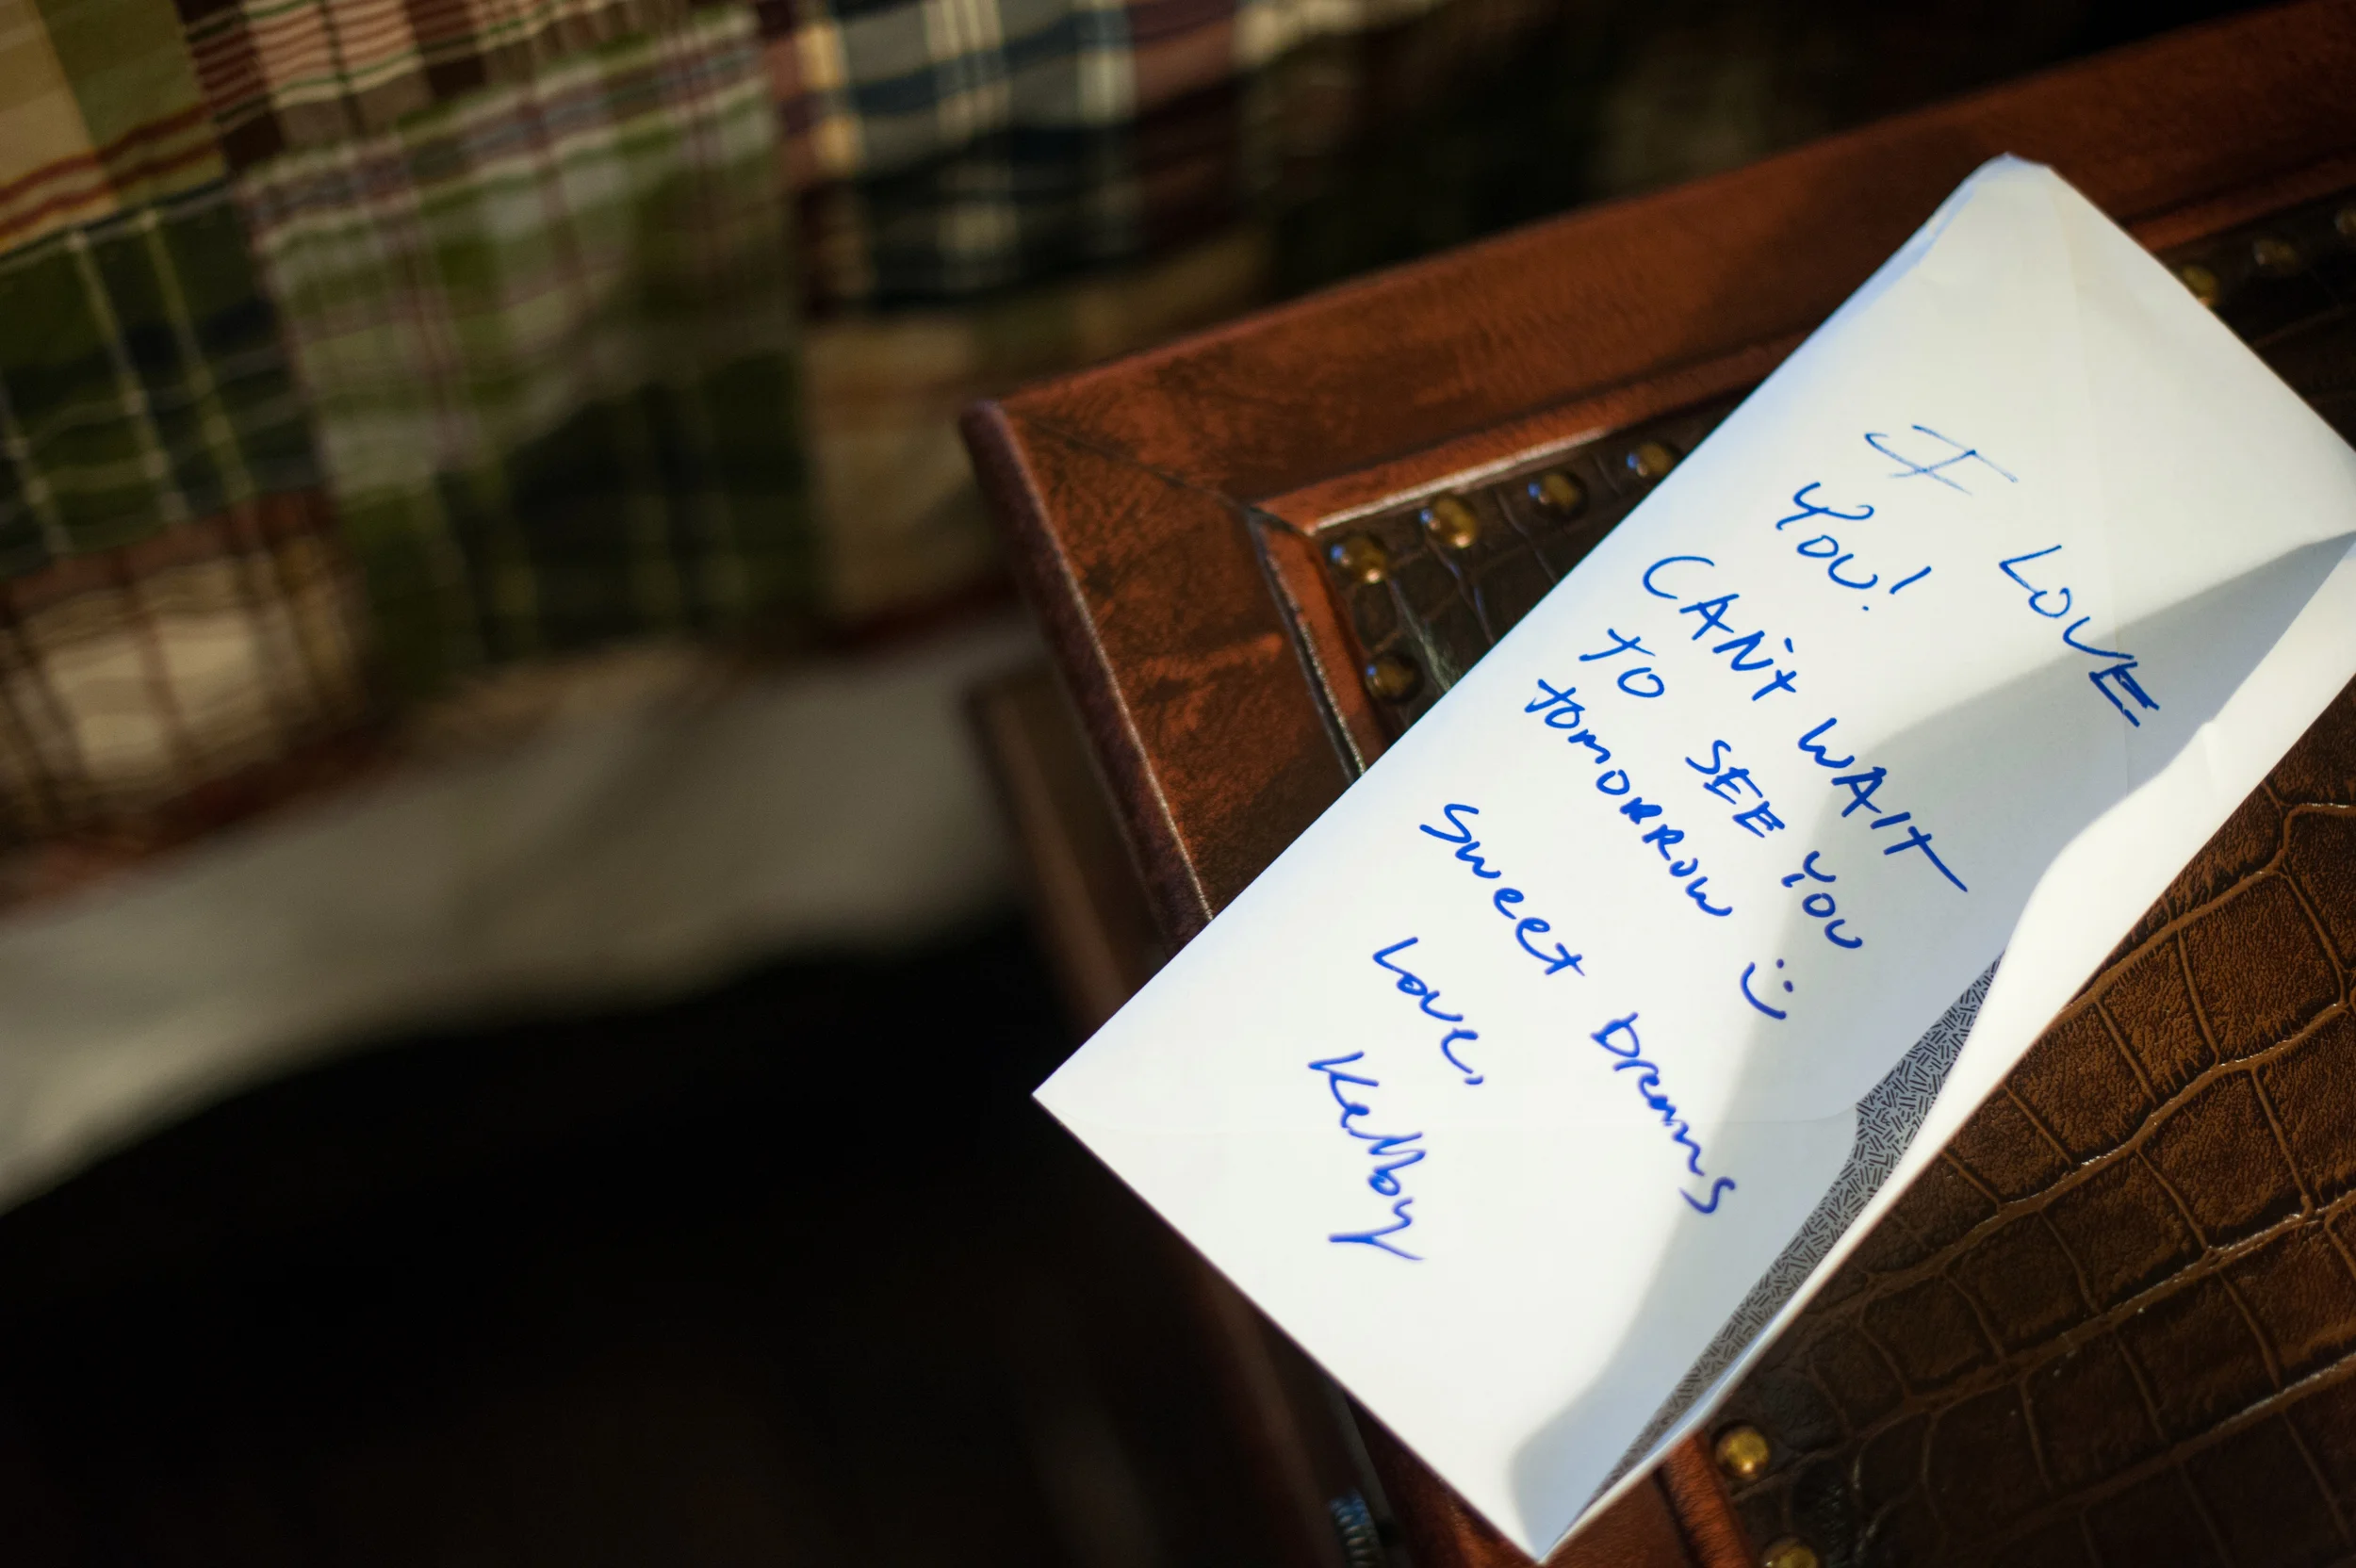 I LOVE
YOU!
CAN't WAIT
TO SEE YOU
TOMORROW :)
Sweet Dreams
Love,
Kellby